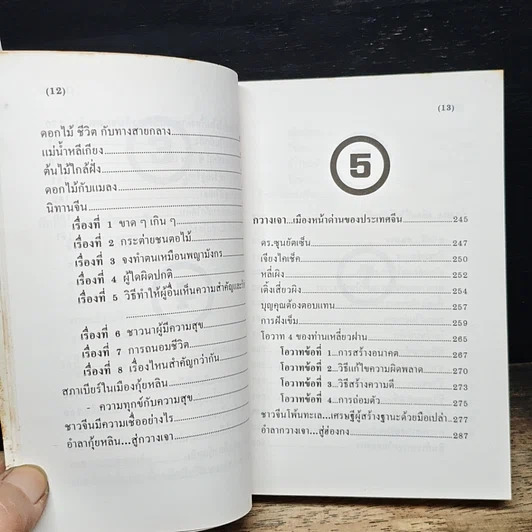 (12)
ดอกไม้ ชีวิต กับทางสายกลาง
แม่น้ำหลีเกียง
ต้นไม้ใกล้ฝั่ง
ดอกไม้กับแมลง
นิทานจีน
เรื่องที่ 1 ขาด ๆ เกิน ๆ
เรื่องที่ 2 กระต่ายชนตอไม้
เรื่องที่ 3 จงทำตนเหมือนพญามังกร
เรื่องที่ 4 ผู้ใดผิดปกติ
เรื่องที่ 5 วิธีทำให้ผู้อื่นเห็นความสำคัญและ
เรื่องที่ 6 ชาวนาผู้มีความสุข
เรื่องที่ 7 การถนอมชีวิต
เรื่องที่ 8 เรื่องไหนสำคัญกว่ากัน
สภาเบียร์ในเมืองกุ้ยหลิน
- ความทุกข์กับความสุข
ชาวจีนมีความเชื่ออย่างไร
อำลากุ้ยหลิน...สู่กวางเจา
(13)
5
กวางเจา...เมืองหน้าด่านของประเทศจีน 245
ดร.ซุนยัดเซ็น 247
เจียงไคเช็ค 250
หลี่เผิง 252
เติ้งเสี่ยวผิง 255
บุญคุณต้องตอบแทน 257
การฝังเข็ม 259
โอวาท 4 ของท่านเหลี่ยวฝาน 265
โอวาทข้อที่ 1...การสร้างอนาคต 267
โอวาทข้อที่ 2...วิธีแก้ไขความผิดพลาด 270
โอวาทข้อที่ 3...วิธีสร้างความดี 273
โอวาทข้อที่ 4...การถ่อมตัว 275
ชาวจีนโพ้นทะเล...เศรษฐีผู้สร้างฐานะด้วยมือเปล่า 277
อำลากวางเจา...สู่ฮ่องกง 287